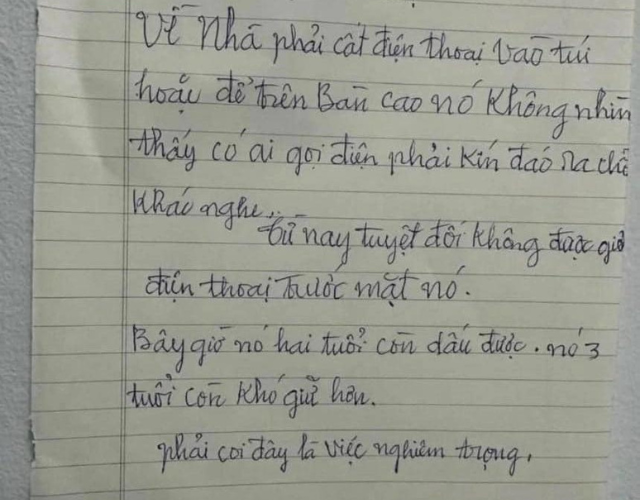 Về Nhà phải cất điện thoại vào túi
hoặc để trên Bàn cao nó Không nhìn
thấy có ai gọi điện phải Kín đáo ra chỗ
Kháo nghe..
từ nay tuyệt đối không được giở
điện thoại trước mặt nó.
Bây giờ nó hai tuổi còn dấu được. nó 3
tuổi còn Khó giữ hơn.
phải coi đây là việc nghiêm trọng.